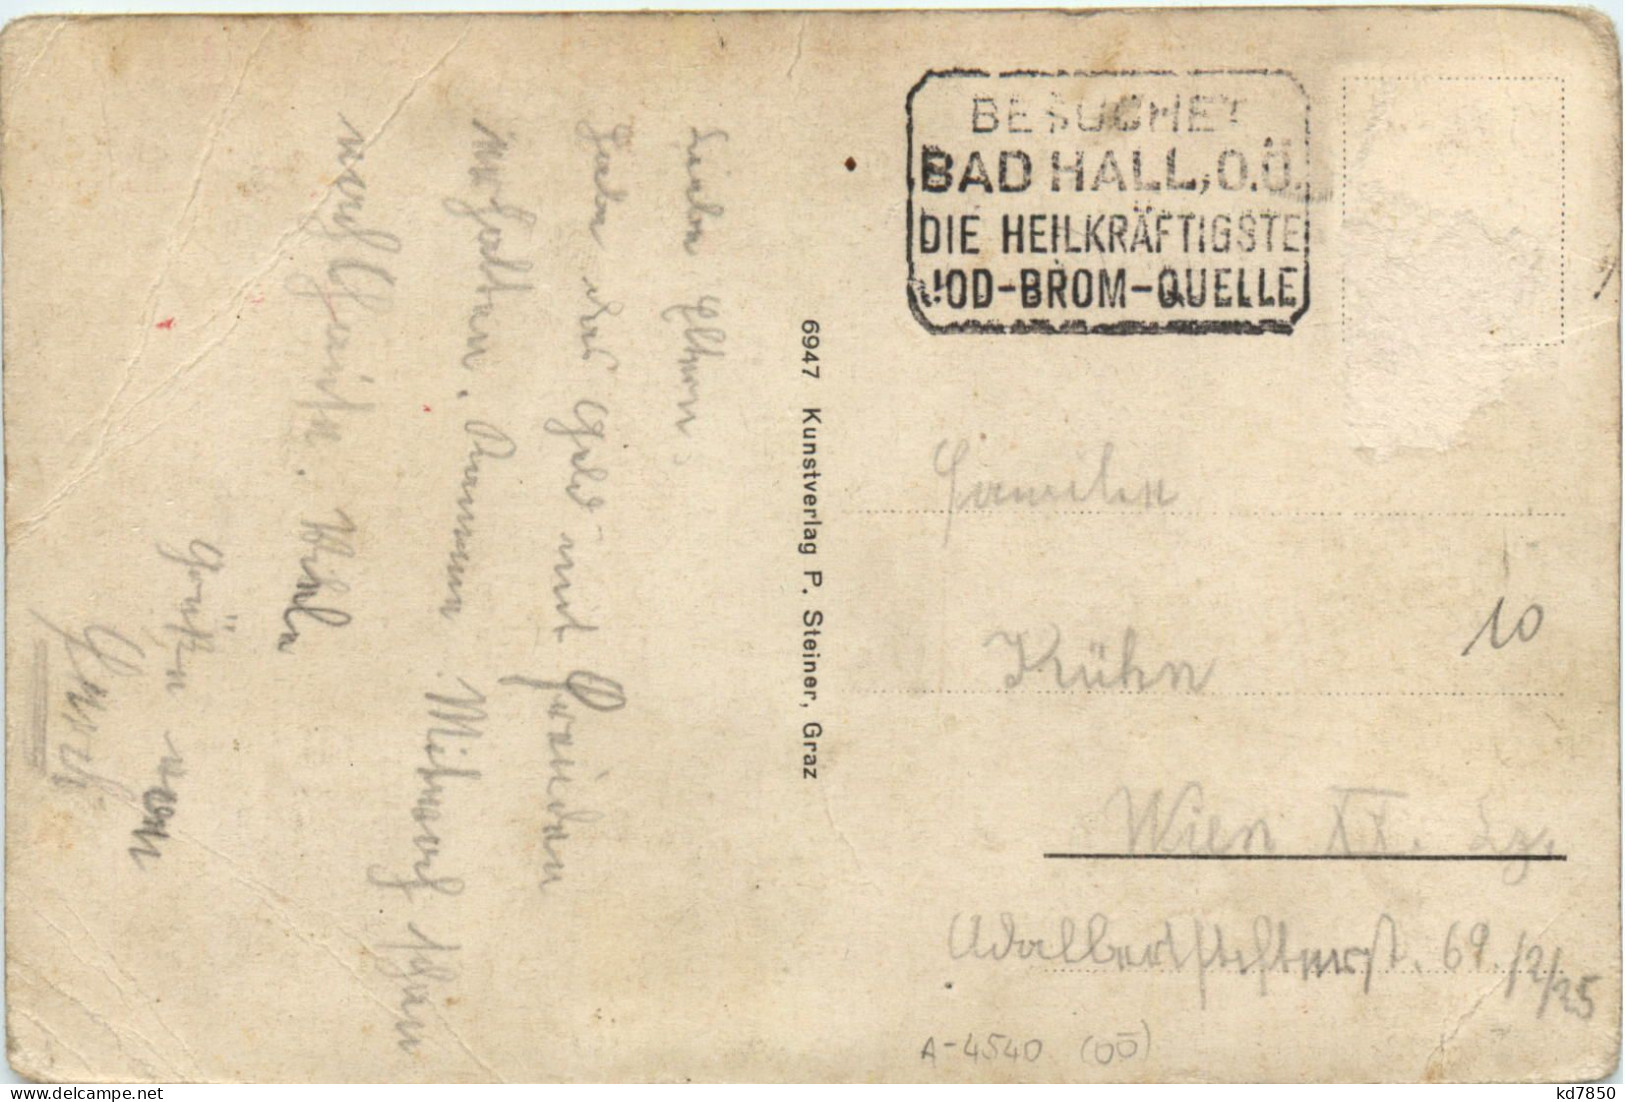 Liebe Eltern!
Habe das Geld mit Freuden
erhalten. Kommen Mittwoch schon
nach Hause. Viele
Grüße von
BESUCHET
BAD HALL, O.Ö.
DIE HEILKRÄFTIGSTE
JOD-BROM-QUELLE
6947 Kunstverlag P. Steiner, Graz
Familie
Kühn
10
Wien XX.
Adalbertstifterst. 69/2/25
A-4540 (OÖ)
kd7850